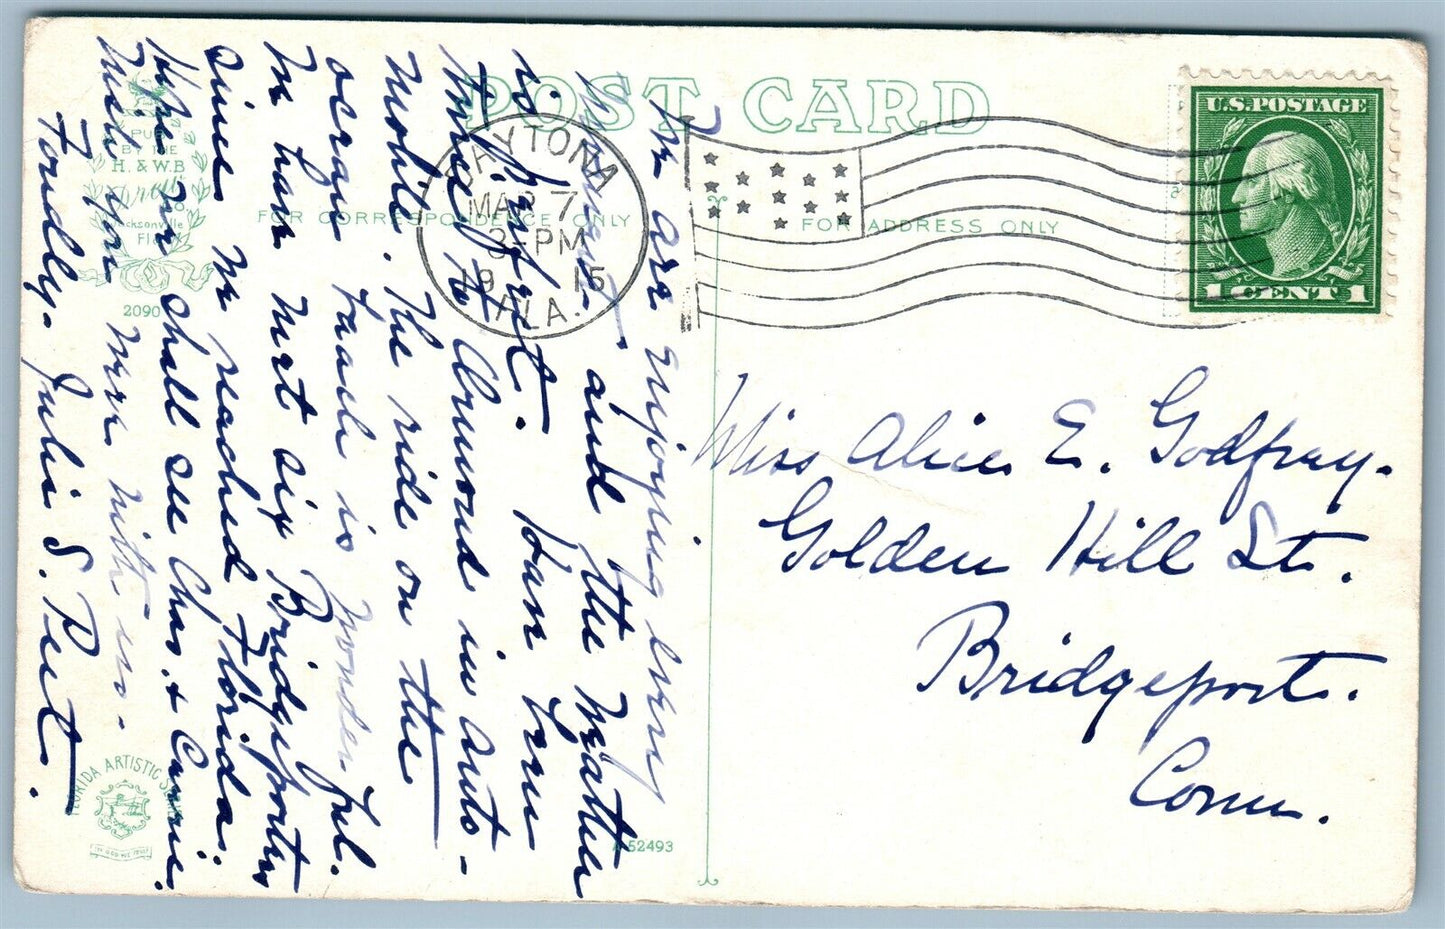 POST CARD
FOR CORRESPONDENCE ONLY
FOR ADDRESS ONLY
DAYTONA
MAR 7
3-PM
1915
FLA.
U.S. POSTAGE
1 CENT 1
Miss Alice E. Godfrey.
Golden Hill St.
Bridgeport.
Conn.
We are enjoying every
moment and the weather
is perfect. Have been
three to Ormond in auto-
mobile. The ride on the
ocean beach is wonderful.
We have met six Bridgeporters
since we reached Florida.
Hope we shall see Chas. & Carrie.
Wish you were with us.
Fondly. Julie S. Peet.
PUB.
BY THE
H. & W.B.
Drew
CO
Jacksonville
FLA.
2090
FLORIDA ARTISTIC
A 52493